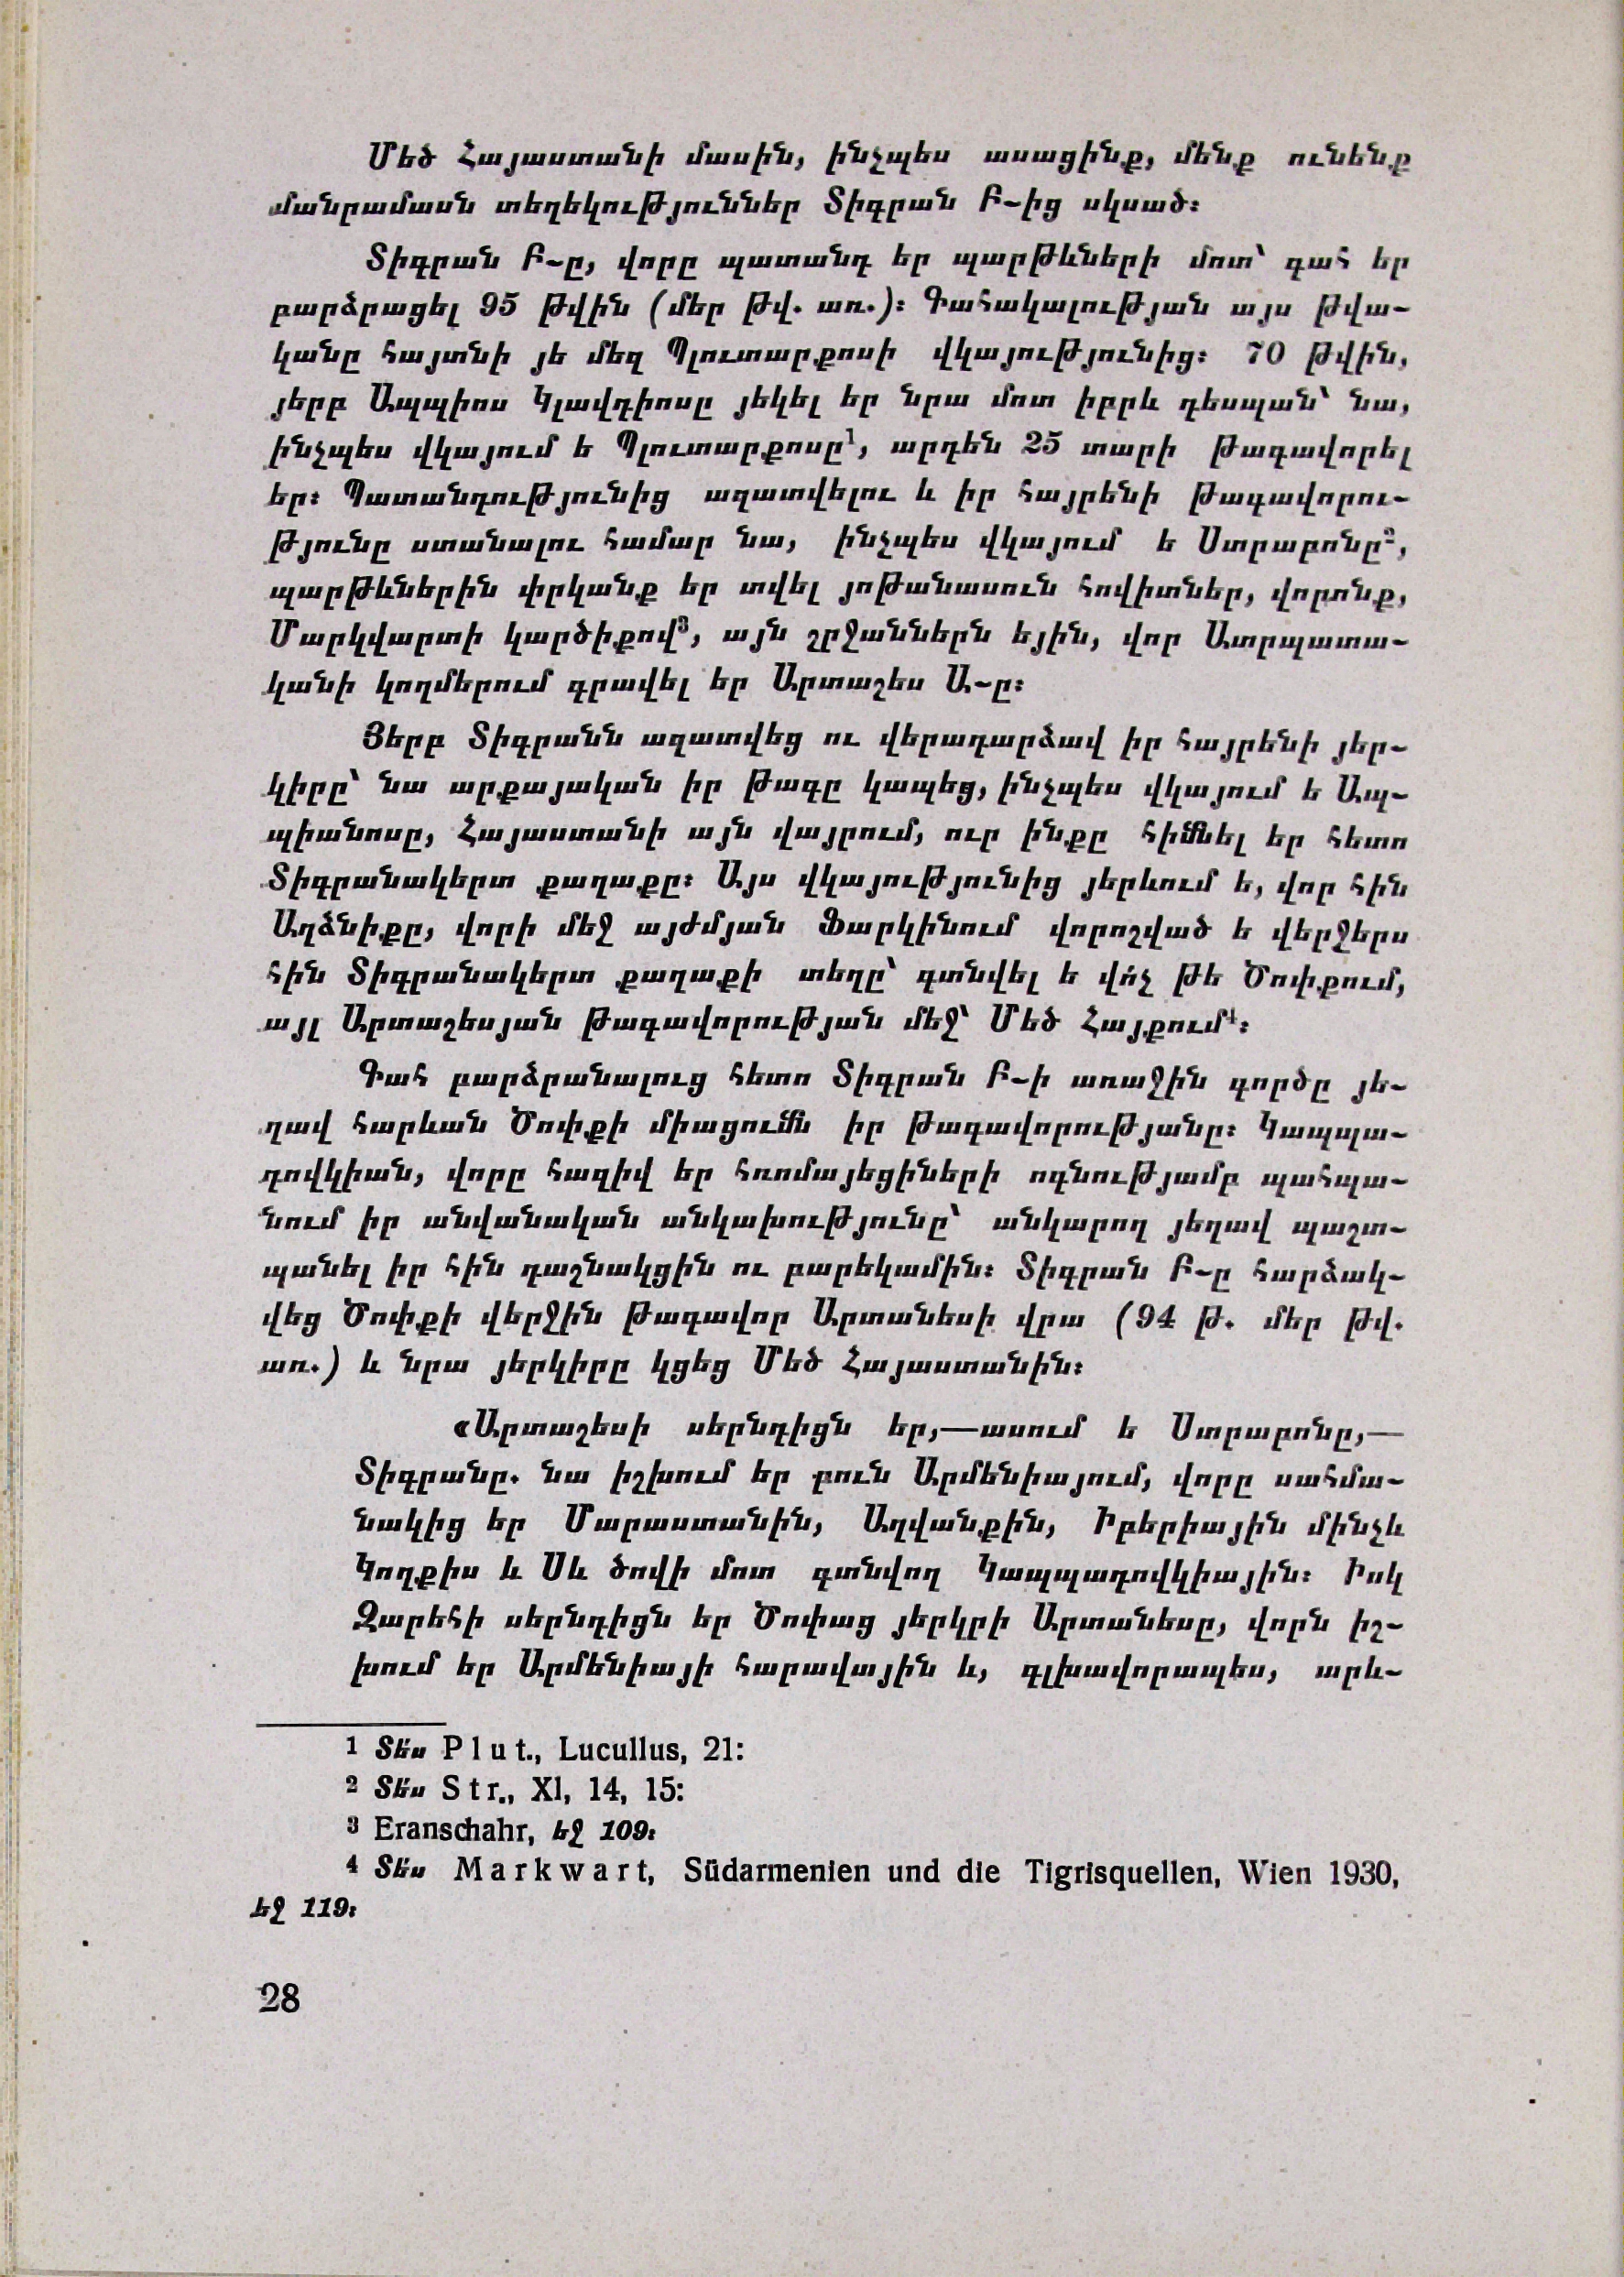 Մեծ Հայաստանի մասին, ինչպես ասացինք, մենք ունենք
մանրամասն տեղեկություններ Տիգրան Բ-ից սկսած։
Տիգրան Բ-ը, վորը պատանդ եր պարթևների մոտ՝ գահ եր
բարձրացել 95 թվին (մեր թվ. առ.)։ Գահակալության այս թվա-
կանը հայտնի յե մեզ Պլուտարքոսի վկայությունից։ 70 թվին,
յերբ Ապպիոս Կլավդիոսը յեկել եր նրա մոտ իբրև դեսպան՝ նա,
ինչպես վկայում ե Պլուտարքոսը¹, արդեն 25 տարի թագավորել
եր։ Պատանդությունից ազատվելու և իր հայրենի թագավորու-
թյունը ստանալու համար նա, ինչպես վկայում ե Ստրաբոնը²,
պարթևներին փրկանք եր տվել յոթանասուն հովիտներ, վորոնք,
Մարկվարտի կարծիքով³, այն շրջաններն եյին, վոր Ատրպատա-
կանի կողմերում գրավել եր Արտաշես Ա-ը։
Յերբ Տիգրանն ազատվեց ու վերադարձավ իր հայրենի յեր-
կիրը՝ նա արքայական իր թագը կապեց, ինչպես վկայում ե Ապ-
պիանոսը, Հայաստանի այն վայրում, ուր ինքը հիմնել եր հետո
Տիգրանակերտ քաղաքը։ Այս վկայությունից յերևում ե, վոր հին
Աղձնիքը, վորի մեջ այժմյան Ֆարկինում վորոշված ե վերջերս
հին Տիգրանակերտ քաղաքի տեղը՝ գտնվել ե վո՛չ թե Ծոփքում,
այլ Արտաշեսյան թագավորության մեջ՝ Մեծ Հայքում⁴։
Գահ բարձրանալուց հետո Տիգրան Բ-ի առաջին գործը յե-
ղավ հարևան Ծոփքի միացումն իր թագավորությանը։ Կապպա-
դովկիան, վորը հազիվ եր հռոմայեցիների ոգնությամբ պահպա-
նում իր անվանական անկախությունը՝ անկարող յեղավ պաշտ-
պանել իր հին դաշնակցին ու բարեկամին։ Տիգրան Բ-ը հարձակ-
վեց Ծոփքի վերջին թագավոր Արտանեսի վրա (94 թ. մեր թվ.
առ.) և նրա յերկիրը կցեց Մեծ Հայաստանին։
«Արտաշեսի սերնդիցն եր,—ասում ե Ստրաբոնը,—
Տիգրանը. նա իշխում եր բուն Արմենիայում, վորը սահմա-
նակից եր Մարաստանին, Աղվանքին, Իբերիային մինչև
Կողքիս և Սև ծովի մոտ գտնվող Կապպադովկիային։ Իսկ
Զարեհի սերնդիցն եր Ծոփաց յերկրի Արտանեսը, վորն իշ-
խում եր Արմենիայի հարավային և, գլխավորապես, արև-
1 Տե՛ս Plut., Lucullus, 21:
2 Տե՛ս Str., XI, 14, 15:
3 Eranschahr, եջ 109։
4 Տե՛ս Markwart, Südarmenien und die Tigrisquellen, Wien 1930,
եջ 119։
28